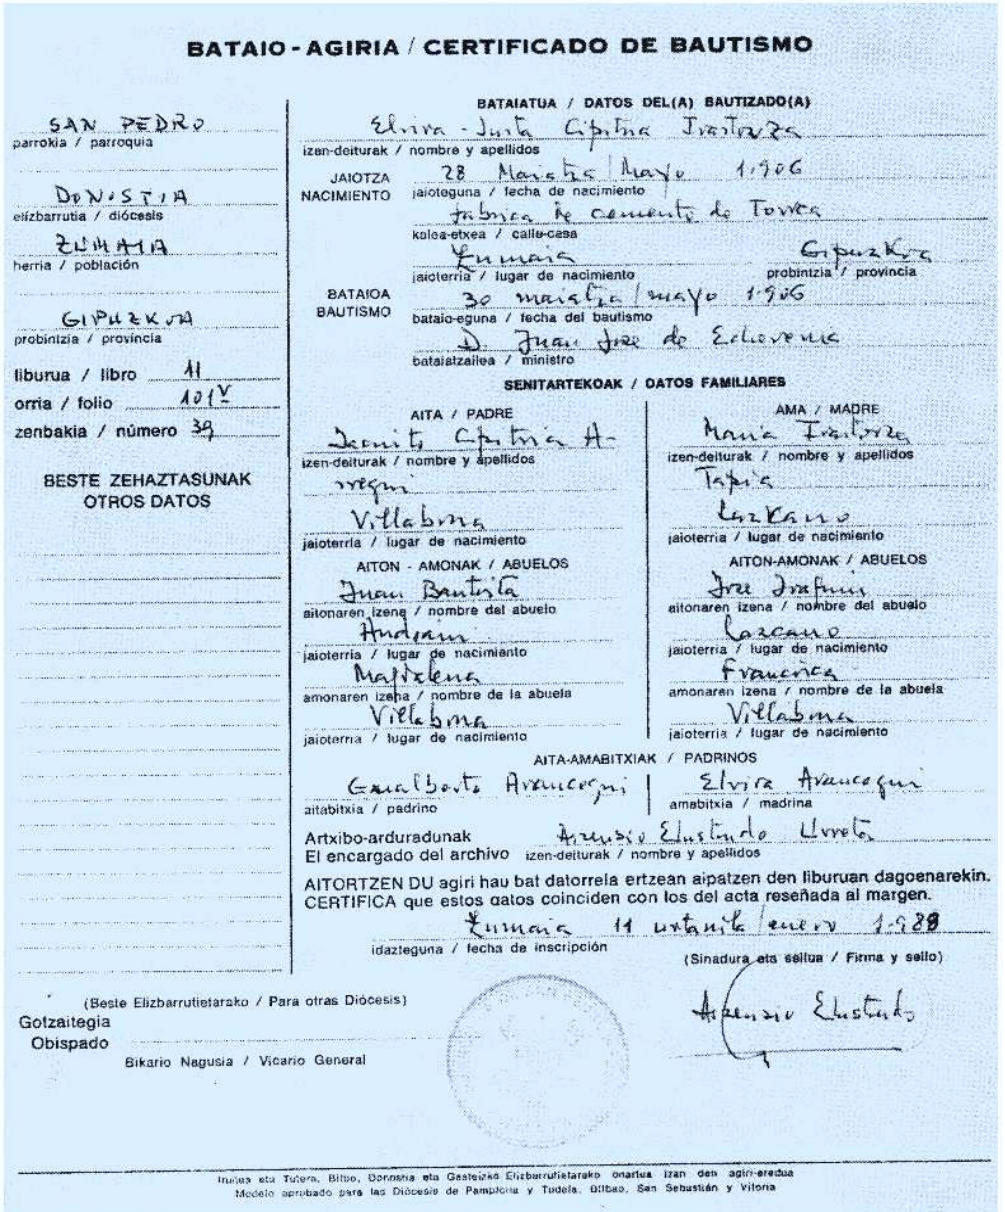 BATAIO - AGIRIA / CERTIFICADO DE BAUTISMO
SAN PEDRO
parrokia / parroquia
DONOSTIA
elizbarrutia / diócesis
ZUMAIA
herria / población
GIPUZKOA
probintzia / provincia
liburua / libro 11
orria / folio 101V
zenbakia / número 39
BESTE ZEHAZTASUNAK
OTROS DATOS
BATAIATUA / DATOS DEL(A) BAUTIZADO(A)
Elvira - Justa Cipitria Irastorza
izen-deiturak / nombre y apellidos
JAIOTZA
NACIMIENTO
28 Maiatza / Mayo 1.906
jaioteguna / fecha de nacimiento
fabrica de cemento de Torrea
kalea-etxea / calle-casa
Zumaia Gipuzkoa
jaioterria / lugar de nacimiento probintzia / provincia
BATAIOA
BAUTISMO
30 maiatza / mayo 1.906
bataio-eguna / fecha del bautismo
D. Juan Jose de Echeverria
bataiatzailea / ministro
SENITARTEKOAK / DATOS FAMILIARES
AITA / PADRE
Cipitria A-
izen-deiturak / nombre y apellidos
rregui
Villabona
jaioterria / lugar de nacimiento
AITON - AMONAK / ABUELOS
Juan Bautista
aitonaren izena / nombre del abuelo
Andoain
jaioterria / lugar de nacimiento
Magdalena
amonaren izena / nombre de la abuela
Villabona
jaioterria / lugar de nacimiento
AMA / MADRE
Maria Irastorza
izen-deiturak / nombre y apellidos
Tapia
Lazkano
jaioterria / lugar de nacimiento
AITON-AMONAK / ABUELOS
Jose
aitonaren izena / nombre del abuelo
Lazcano
jaioterria / lugar de nacimiento
Francisca
amonaren izena / nombre de la abuela
Villabona
jaioterria / lugar de nacimiento
AITA-AMABITXIAK / PADRINOS
Gualberto Arancegui
aitabitxia / padrino
Elvira Arancegui
amabitxia / madrina
Artxibo-arduradunak
El encargado del archivo
Azensio Elustondo Urreta
izen-deiturak / nombre y apellidos
AITORTZEN DU agiri hau bat datorrela ertzean aipatzen den liburuan dagoenarekin.
CERTIFICA que estos datos coinciden con los del acta reseñada al margen.
Zumaia 11 urtarrila / enero 1.988
idazteguna / fecha de inscripción
(Sinadura eta sellua / Firma y sello)
Azensio Elustondo
(Beste Elizbarrutietarako / Para otras Diócesis)
Gotzaitegia
Obispado
Bikario Nagusia / Vicario General
Iruñea eta Tutera, Bilbo, Donostia eta Gasteizko Elizbarrutietarako onartua izan den agiri-eredua
Modelo aprobado para las Diócesis de Pamplona y Tudela, Bilbao, San Sebastián y Vitoria